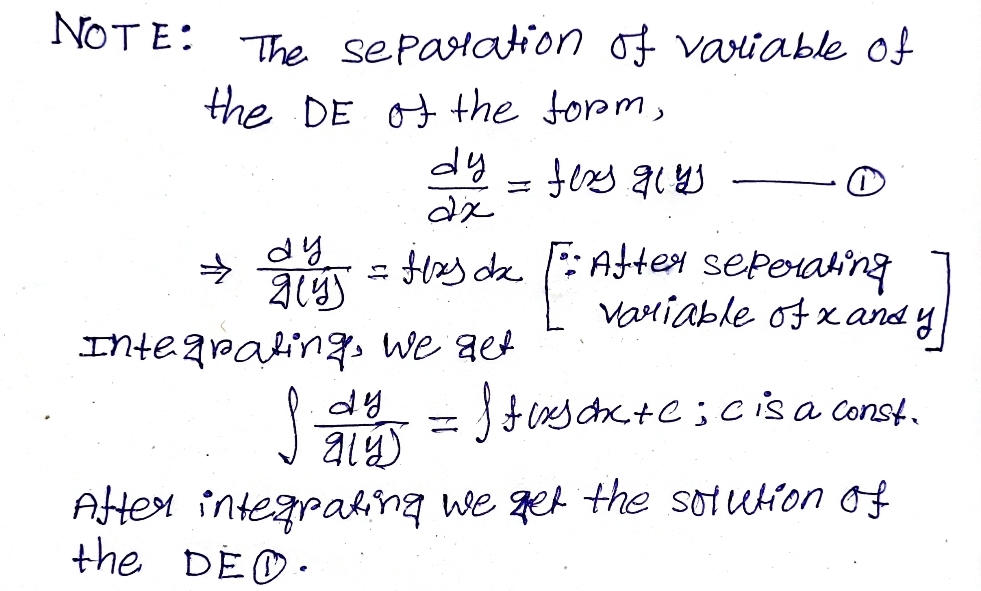 NOTE: The separation of variable of
the DE of the form,
dy/dx = f(x) g(y) —— ①
⇒ dy/g(y) = f(x) dx [∵ After seperating
variable of x and y]
Integrating, we get
∫ dy/g(y) = ∫ f(x) dx + c ; c is a const.
After integrating we get the solution of
the DE ①.